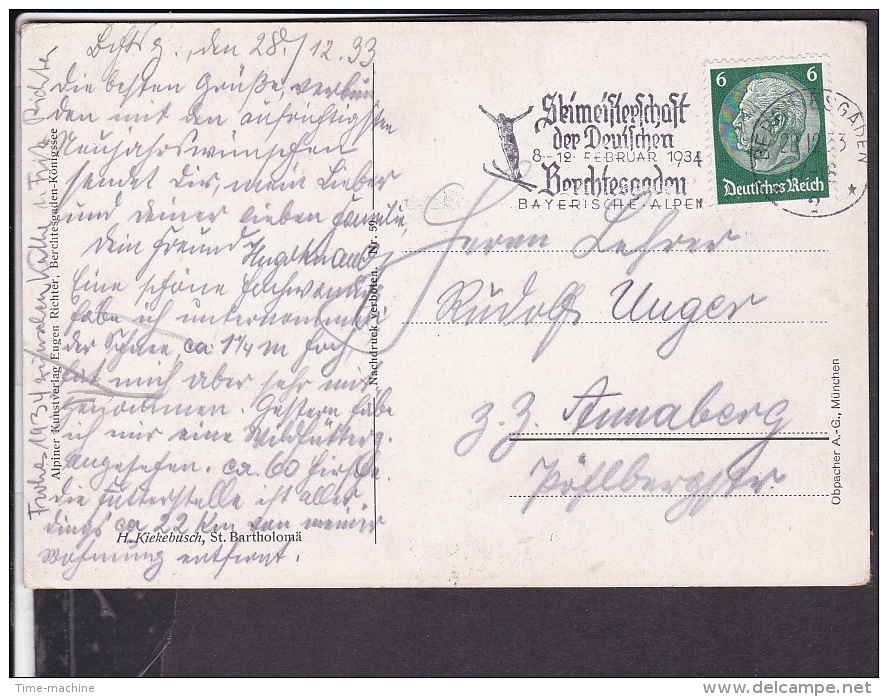 Bchtsg., den 28./12.33
Die besten Grüße, verbun
den mit den aufrichtigsten
Neujahrswünschen
sendet Dir, mein Lieber
und deiner lieben Familie,
Dein Freund
Eine schöne
habe ich unternommen
der Schnee, ca 1¼ m hoch
hat mich aber sehr mit
genommen. Gestern habe
ich mir eine Wildfütterg.
angesehen. ca. 60 Hirsche.
Die Futterstelle ist aller
dings ca 22 km von meiner
Wohnung entfernt.
Frohes 1934 wünschen
Alpiner Kunstverlag Eugen Richter, Berchtesgaden-Königssee
H. Kiekebusch, St. Bartholomä
Nachdruck verboten. Nr. 59
Skimeisterschaft
der Deutschen
8-12 FEBRUAR 1934
Berchtesgaden
BAYERISCHE ALPEN
6 6
Deutsches Reich
Herrn Lehrer
Rudolf Unger
z. Z. Annaberg
Pöhlbergstr
Obpacher A.-G., München
Time-machine
delcampe.net